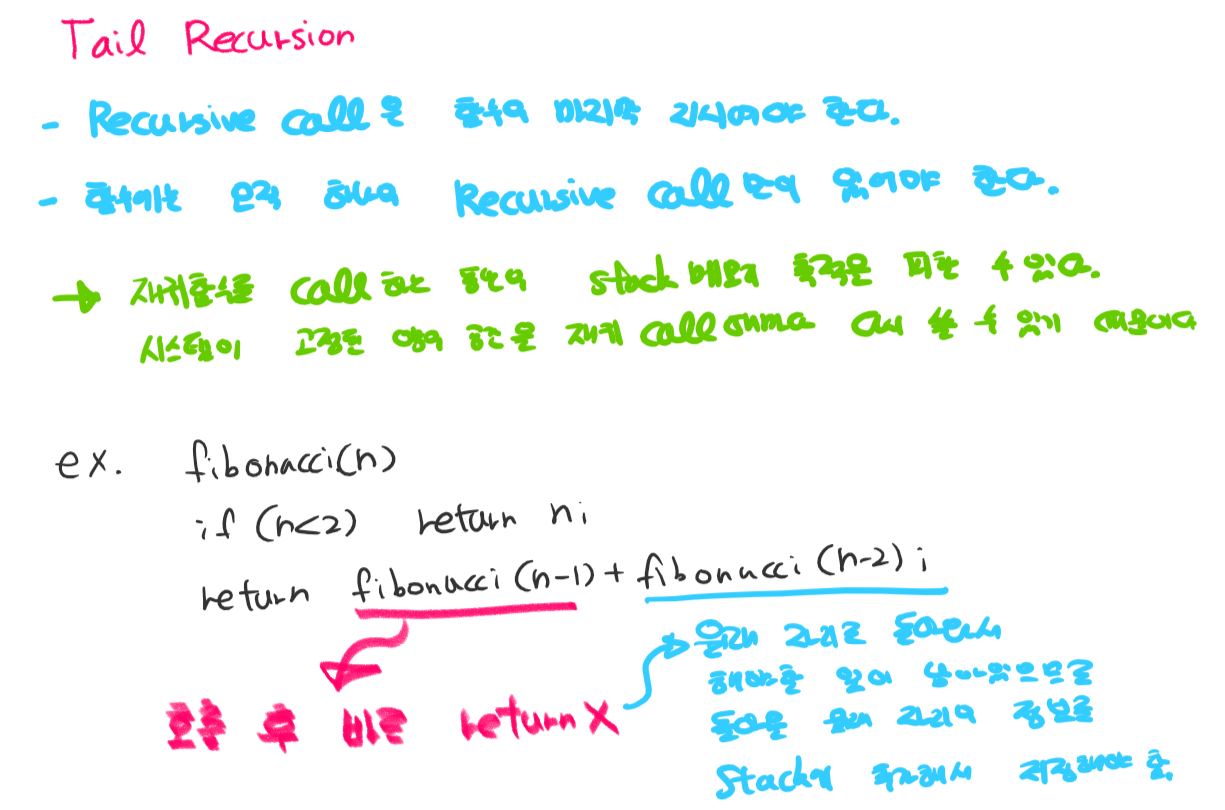 Tail Recursion
- Recursive call은 함수의 마지막 지시여야 한다.
- 함수에는 오직 하나의 Recursive call만이 있어야 한다.
→ 재귀함수를 call 하는 동안의 stack 메모리 폭격은 피할 수 있다.
시스템이 고정된 양의 공간을 재귀 call 다시 쓸 수 있기 때문이다
ex. fibonacci(n)
if (n<2) return n;
return fibonacci(n-1) + fibonacci(n-2);
호출 후 바로 return X
원래 자리로 돌아와서
해야할 일이 남아있으므로
돌아올 원래 자리의 정보를
Stack에 추가해서 저장해야 함.